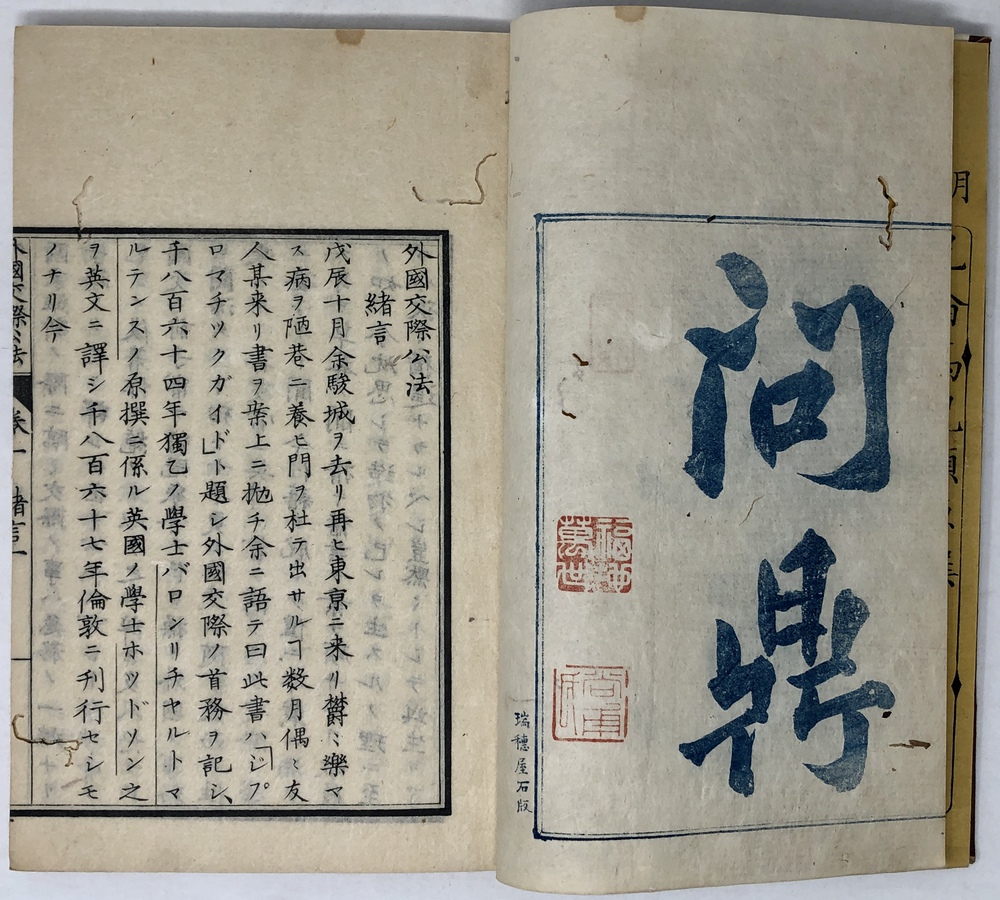 問鼎
福地萬世
瑞穂屋石版
外國交際公法
緒言
戊辰十月余駿城ヲ去リ再ヒ東京ニ来リ欝〻樂マ
ス病ヲ陋巷ニ養ヒ門ヲ杜テ出サルヿ数月偶〻友
人某来リ書ヲ案上ニ抛チ余ニ語テ曰此書ハ「ジプ
ロマチツクガイド」ト題シ外國交際ノ首務ヲ記シ、
千八百六十四年獨乙ノ學士バロンリチヤルトマ
ルテンスノ原撰ニ係ル英國ノ學士ホツドソン之
ヲ英文ニ譯シ千八百六十七年倫敦ニ刊行セシモ
ノナリ今
外國交際公法 巻一 緒言 一